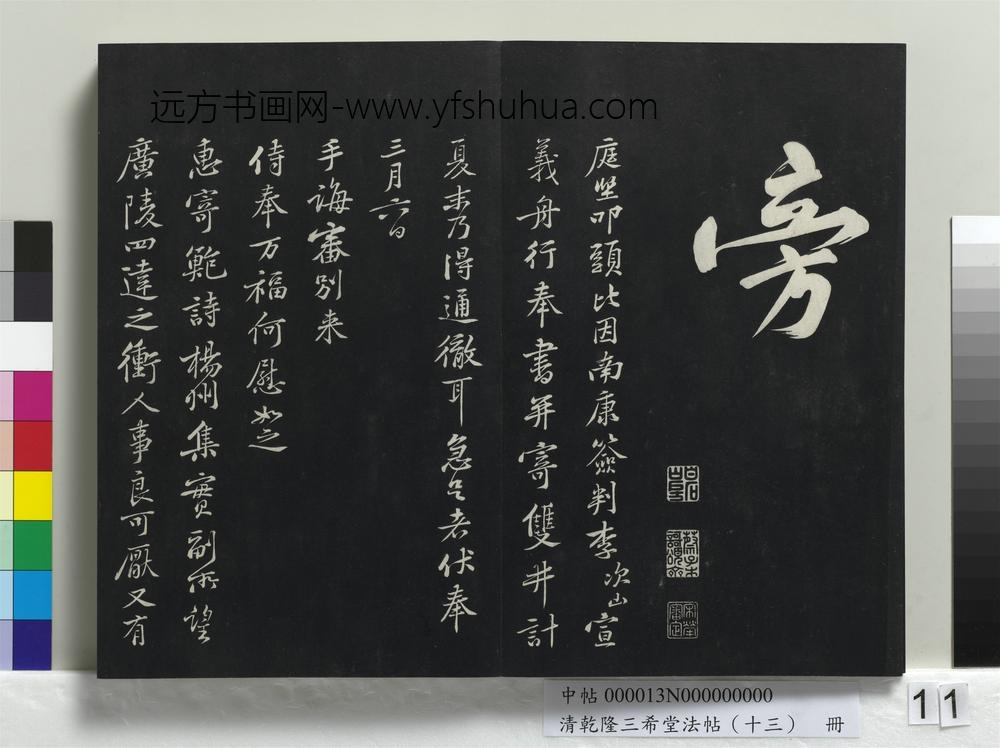 远方书画网-www.yfshuhua.com
旁
庭堅叩頭比因南康簽判李次山宣
義舟行奉書并寄雙井計
夏末乃得通徹耳急足者伏奉
三月六日
手誨審別来
侍奉万福何慰如之
惠寄鮑詩楊州集實副所望
廣陵四達之衝人事良可厭又有
中帖 000013N000000000
清乾隆三希堂法帖（十三） 冊
11